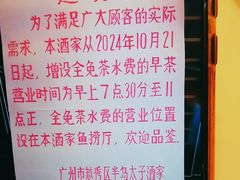 为了满足广大顾客的实际
需求，本酒家从2024年10月21
日起，增设全免茶水费的早茶
营业时间为早上7点30分至11
点正，全免茶水费的营业位置
设在本酒家鱼捞厅，欢迎品鉴。
广州市越秀区半岛太子酒家